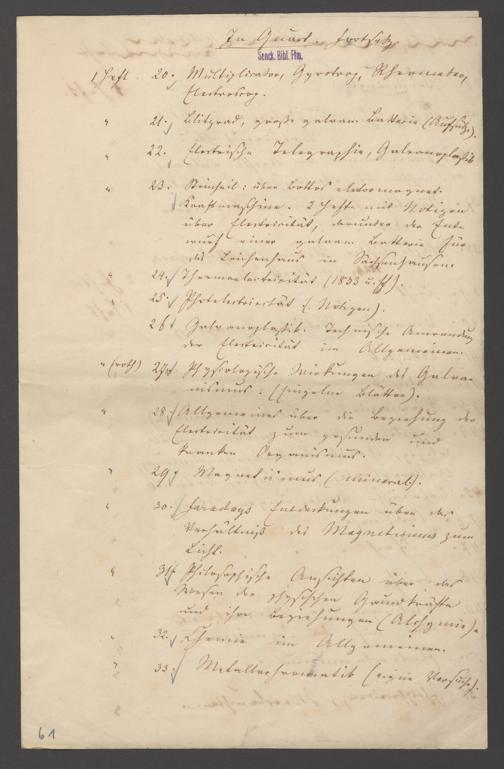 In Quart. Fortsetz.
Senck. Bibl. Ffm.
1 Heft 20. Multiplicator, Gyrotrop, Rheometer,
Electroscop.
" 21. Blitzrad, große galvan. Batterie (Aufsätze).
" 22. Electrische Telegraphie, Galvanoplastik
" 23. Steinheil: über Böttgers electromagnet.
Kraftmaschine. 2 Hefte mit Notizen
über Electricität, darunter der Ent-
wurf einer galvan. Batterie für
das Leichenhaus im Sachsenhausen.
" 24. Thermoelectricität (1833 u. ff).
" 25. Photelectricität (Notizen).
26 Galvanoplastik. Technische Anwendung
der Electricität im Allgemeinen.
" (roth) 27. Physiologische Wirkungen des Galva-
nismus. (Einzelne Blätter).
" 28. Allgemeines über die Beziehung der
Electricität zum gesunden und
kranken Organismus.
" 29. Magnetismus (mineral.).
" 30. Faradays Entdeckungen über das
Verhältniß des Magnetismus zum
Licht.
" 31. Philosophische Ansichten über das
Wesen der physischen Grundkräfte
und ihre Beziehungen (Alchymie).
" 32. Chemie im Allgemeinen.
" 33. Metallochromatik (eigene Versuche).
61